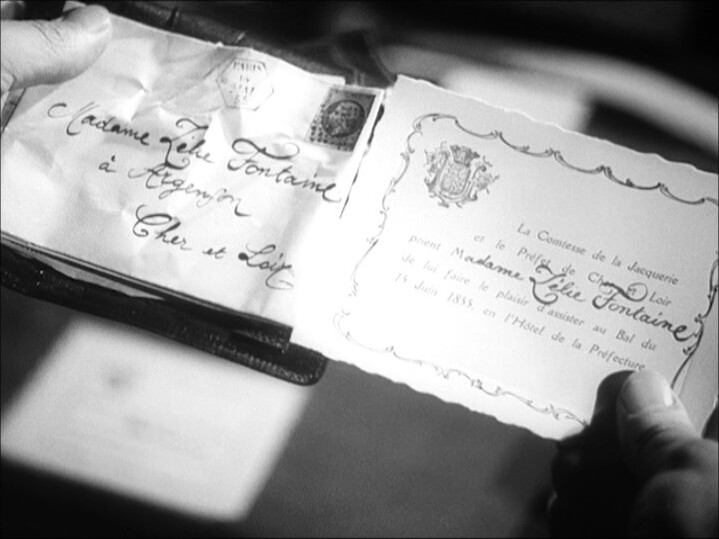 PARIS
Madame Zélie Fontaine
à Argenson
Cher et Loir
La Comtesse de la Jacquerie
et le Préfet de Cher et Loir
prient Madame Zélie Fontaine
de lui faire le plaisir d'assister au Bal du
15 Juin 1855, en l'Hôtel de la Préfecture